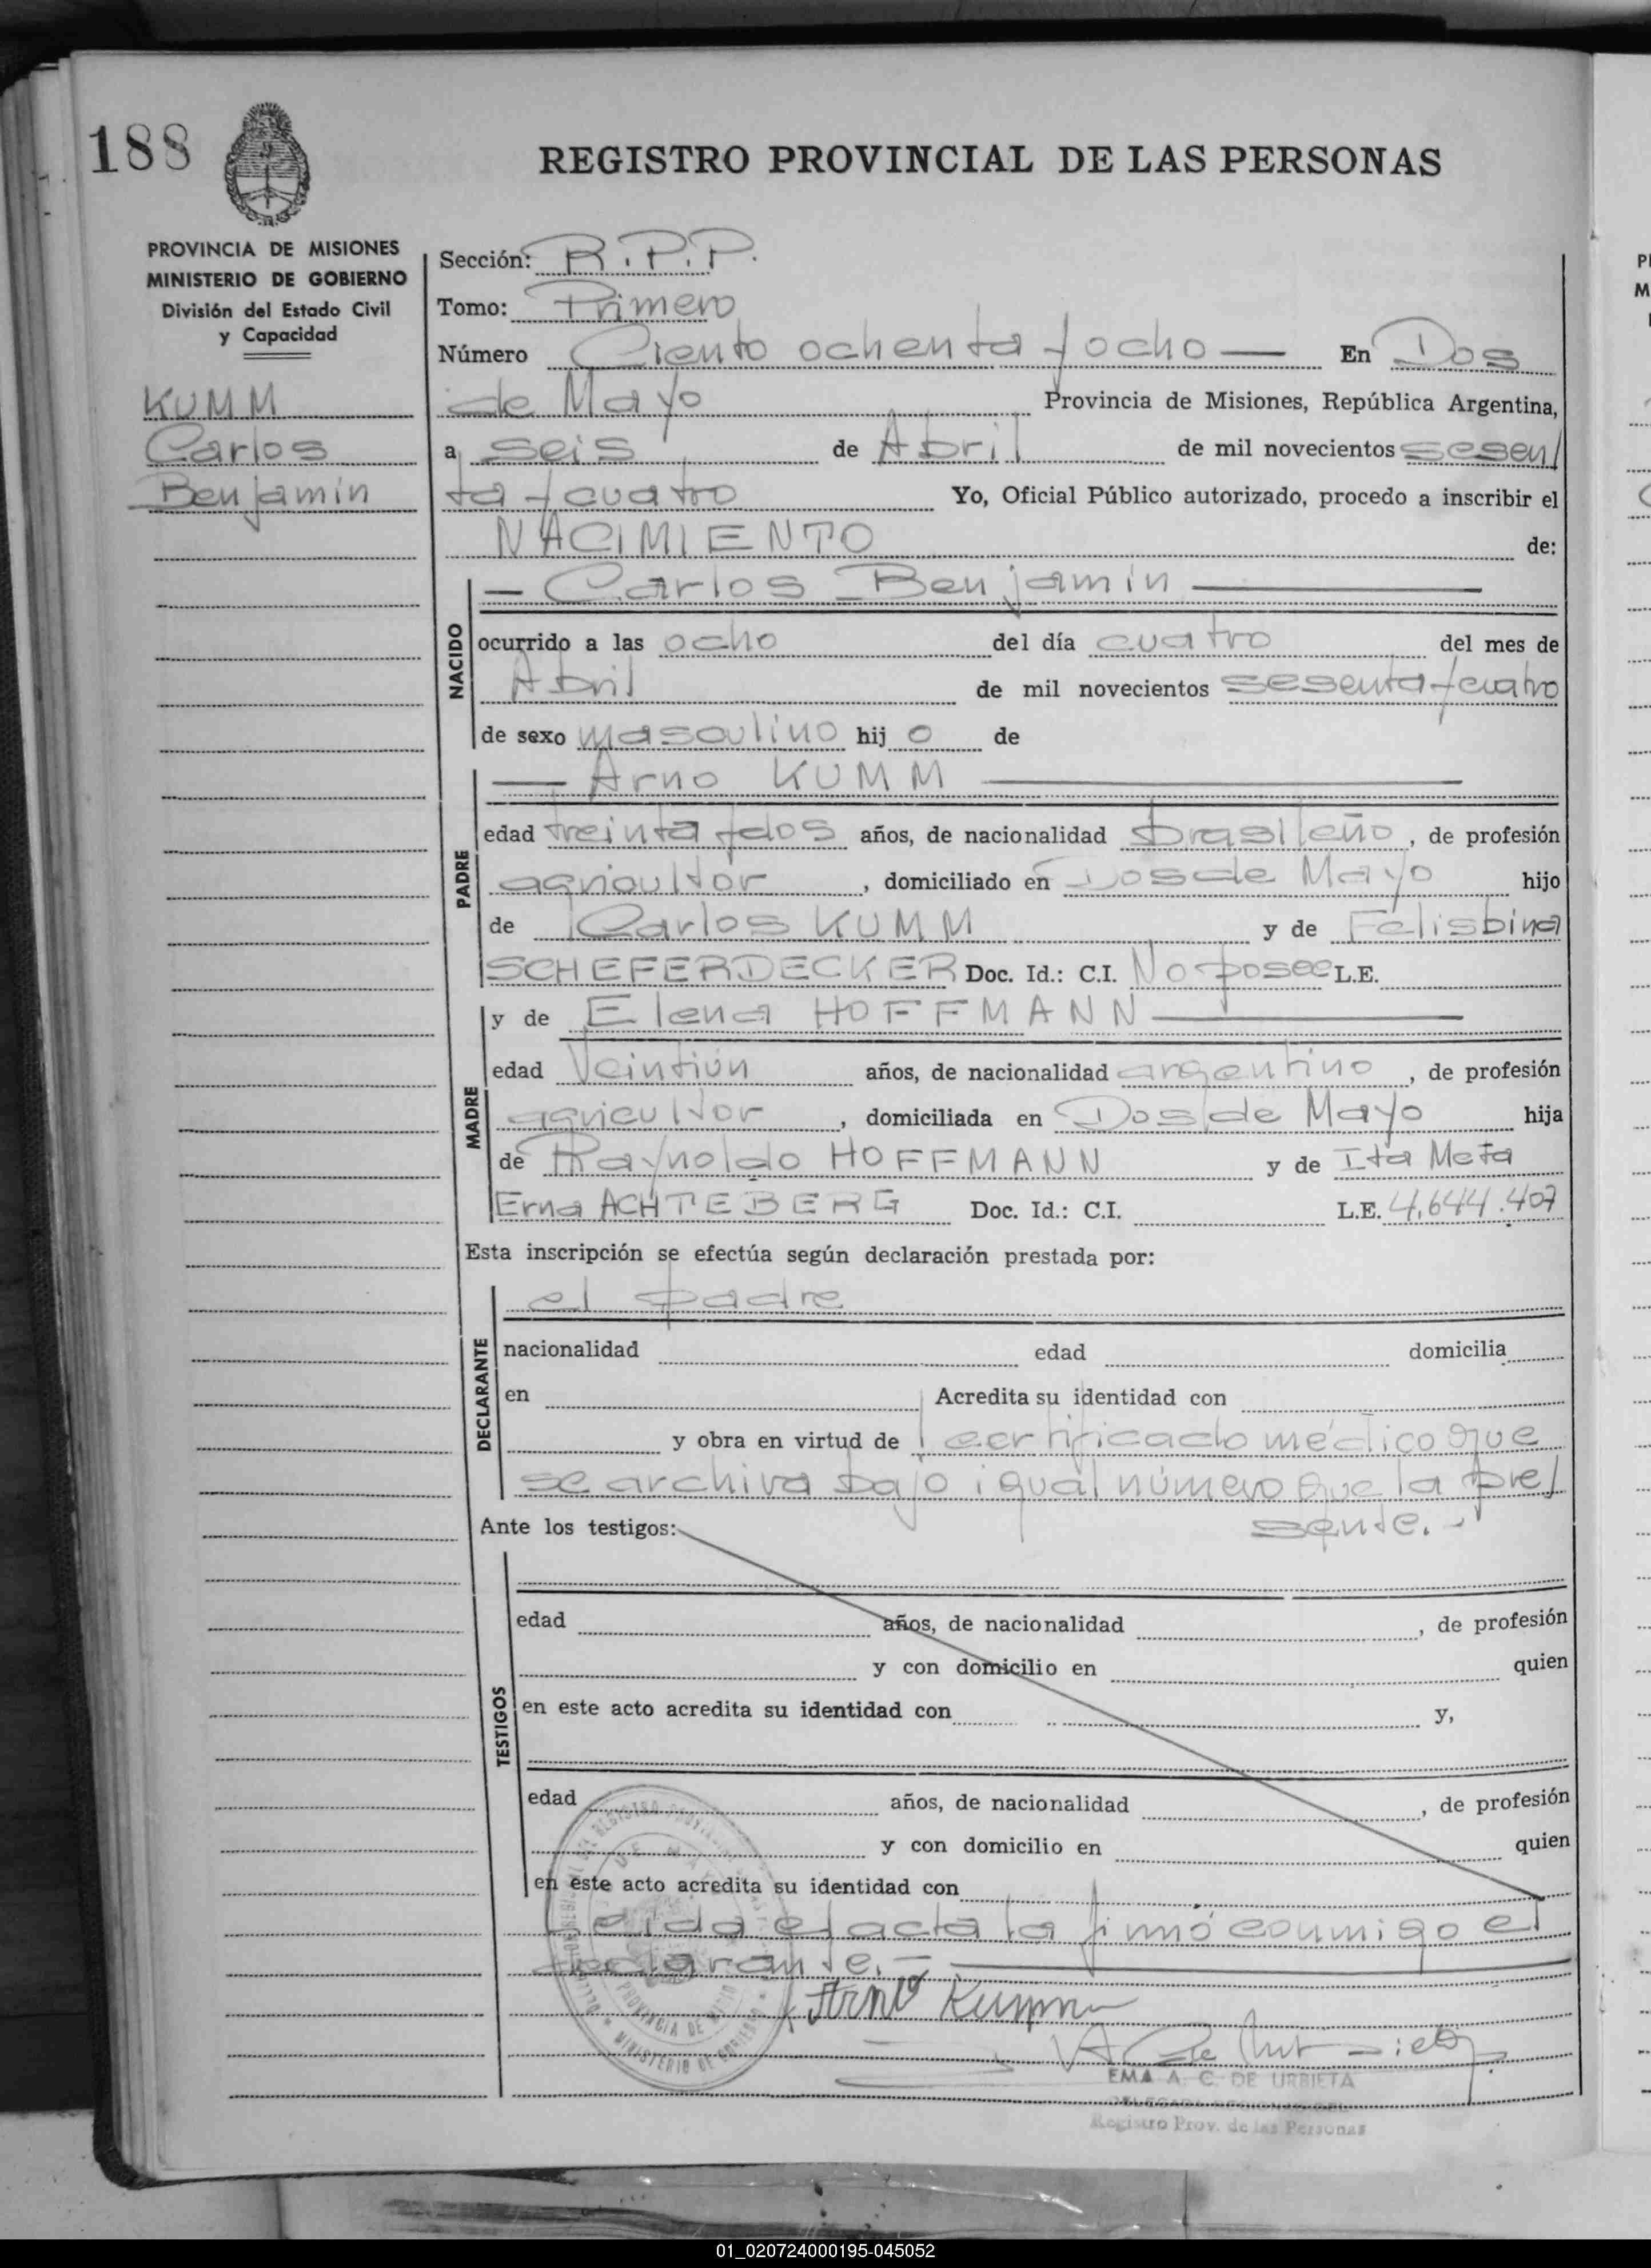 188
REGISTRO PROVINCIAL DE LAS PERSONAS
PROVINCIA DE MISIONES
MINISTERIO DE GOBIERNO
División del Estado Civil
y Capacidad
KUMM
Carlos
Benjamín
Sección: R.P.P.
Tomo: Primero
Número Ciento ochenta y ocho — En Dos
de Mayo Provincia de Misiones, República Argentina,
a seis de Abril de mil novecientos sesen/
ta y cuatro Yo, Oficial Público autorizado, procedo a inscribir el
NACIMIENTO de:
NACIDO
— Carlos Benjamín —
ocurrido a las ocho del día cuatro del mes de
Abril de mil novecientos sesenta y cuatro
de sexo masculino hijo de
PADRE
— Arno KUMM —
edad treinta y dos años, de nacionalidad brasileño, de profesión
agricultor, domiciliado en Dos de Mayo hijo
de Carlos KUMM y de Felisbina
SCHEFERDECKER Doc. Id.: C.I. No posee L.E.
MADRE
y de Elena HOFFMANN —
edad Veintiún años, de nacionalidad argentino, de profesión
agricultor, domiciliada en Dos de Mayo hija
de Raynoldo HOFFMANN y de Ita Meta
Erna ACHTEBERG Doc. Id.: C.I. L.E. 4.644.407
Esta inscripción se efectúa según declaración prestada por:
DECLARANTE
el padre
nacionalidad edad domicilia
en Acredita su identidad con
y obra en virtud de certificado médico que
se archiva bajo igual número que la pre/
sente.-
Ante los testigos:
TESTIGOS
edad años, de nacionalidad , de profesión
y con domicilio en quien
en este acto acredita su identidad con y,
edad años, de nacionalidad , de profesión
y con domicilio en quien
en este acto acredita su identidad con
Leida el acta la firmó conmigo el
declarante.—
Arno Kumm
PROVINCIA DE
MINISTERIO DE GOBIERNO
EMA A. C. DE URBIETA
Registro Prov. de las Personas
01_020724000195-045052